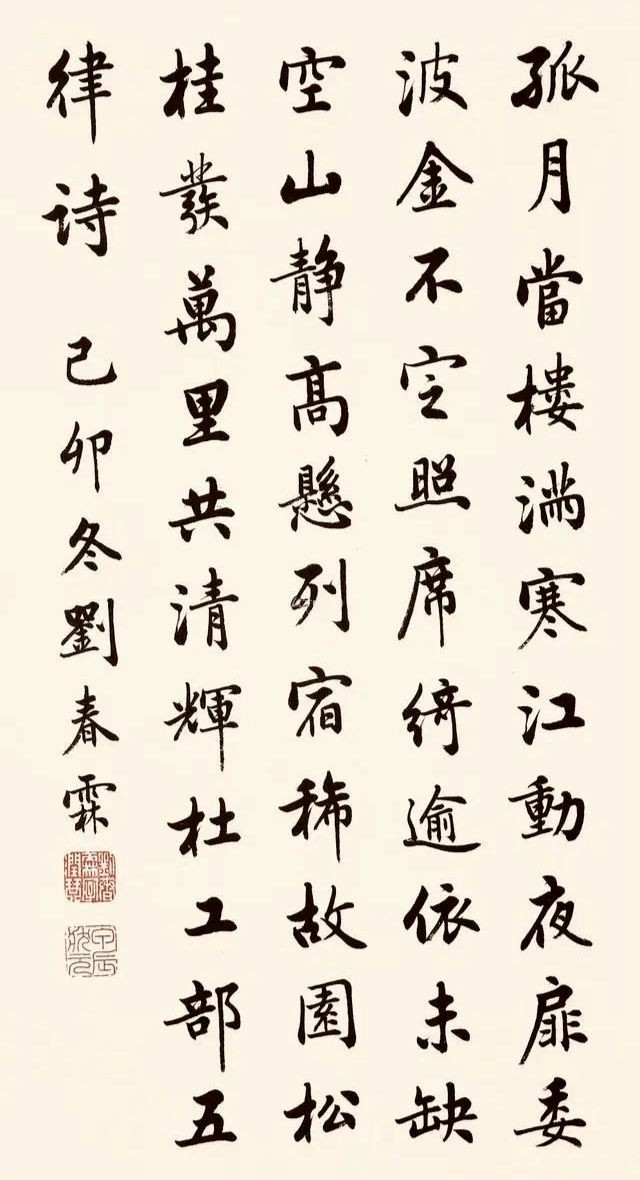 孤月當樓滿寒江動夜扉委
波金不定照席綺逾依未缺
空山静高懸列宿稀故園松
桂發萬里共清輝杜工部五
律詩 己卯冬劉春霖
甲辰狀元